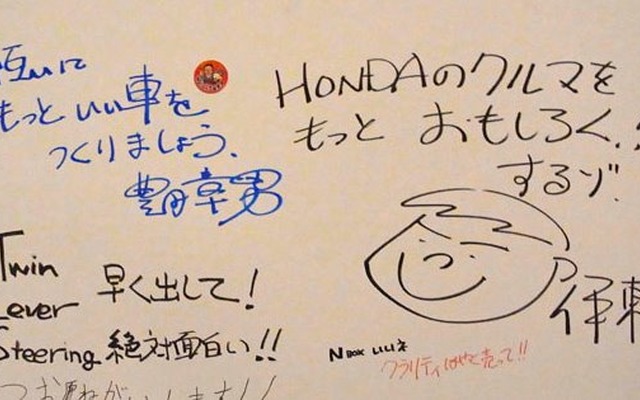 互いに
もっといい車を
つくりましょう。
豊田章男
HONDAのクルマを
もっと おもしろく、!
するゾ!
伊東
Twin
Lever
Steering
早く出して!
絶対面白い!!
お願がいします!!
N BOX いいネ
クラリティはやく売って!!